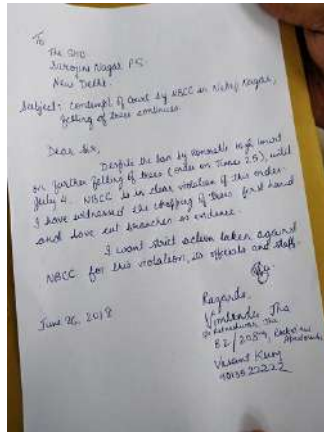 To
The SHO
Sarojini Nagar P.S.
New Delhi.
Subject: Contempt of Court by NBCC in Netaji Nagar,
felling of trees continues.
Dear Sir,
Despite the ban by Honorable High Court
on further felling of trees (order on June 25), until
July 4. NBCC is in clear violation of this order.
I have witnessed the chopping of trees first hand
and have cut branches as evidence.
I want strict action taken against
NBCC for this violation, its officials and staff.
June 26, 2018
Regards,
Vimlendu Jha
82/2087,
Vasant Kunj